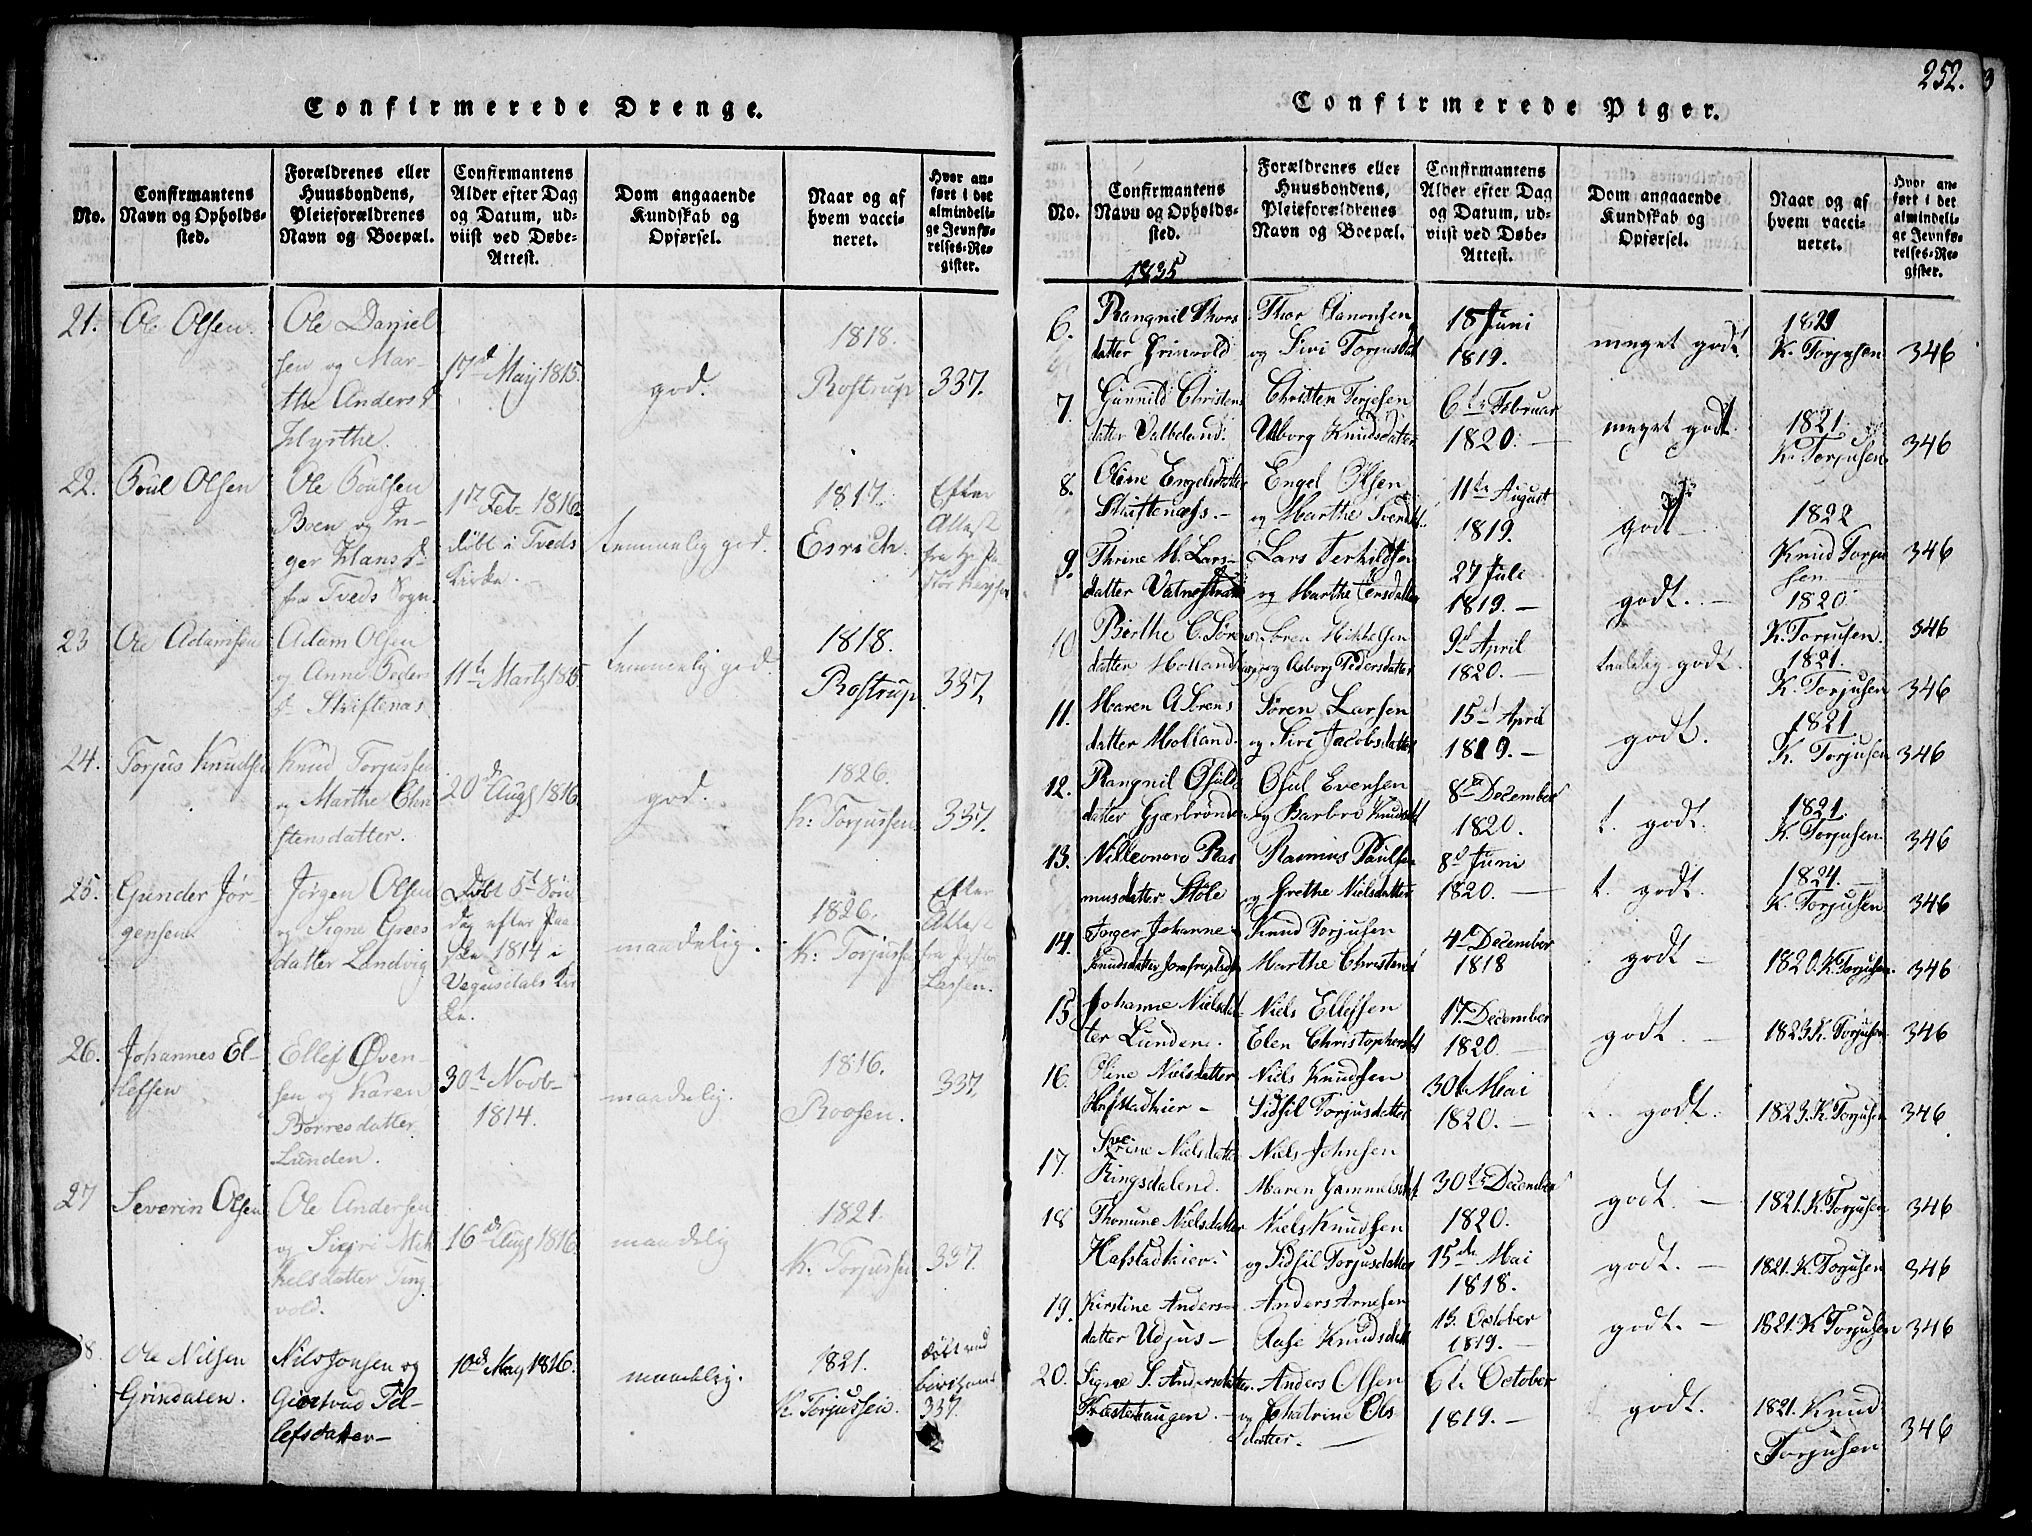 Confirmerede Drenge.
No.
Confirmantens
Navn og Opholds-
sted.
Forældrenes eller
Huusbondens,
Pleieforældrenes
Navn og Boepæl.
Confirmantens
Alder efter Dag
og Datum, ud-
viist ved Døbe-
Attest.
Dom angaaende
Kundskab og
Opførsel.
Naar og af
hvem vacci-
neret.
Hvor an-
ført i det
almindeli-
ge Jevnfø-
relses-Re-
gister.
21.
Ole Olsen.
Ole Daniel
sen og Mar-
the Andersd
17d May 1815.
god.
1818.
Rostrup
337.
22.
Poul Olsen
Ole Poulsen
Bren og In-
ger Hansd
fra Tveds Sogn.
1st Feb. 1816.
døbt i Tveds
Kirke.
temmelig god.
1817.
Esrich.
Efter
Attest
fra
23
Ole Adamsen
Adam Olsen
og Anne Peders
d Skiftenæs.
11te Martz 1815
temmelig god
1818.
Rostrup
337.
24.
Torjus Knudsen
Knud Torjussen
og Marthe Chri
stensdatter.
20d Augs 1816.
god.
1826.
K: Torjussen
337.
25.
Gunder Jør-
gensen
Jørgen Olsen
og Signe
datter Landvig
Døbt 5t Søn
dag efter Paa
ske 1814 i
Vegusdals Kir
ke.
maadelig.
1826.
K: Torjussen
Efter
Attest
fra Pastor
Lassen.
26.
Johannes El-
lefsen
Ellef Øven-
sen og Karen
Børresdatter
Lunden.
30t Novb-
1814.
maadelig.
1816.
Roosen.
337.
27
Severin Olsen
Ole Andersen
og Sigri Mik
kelsdatter Ting
vold.
16d Augs 1816.
maadelig
1821.
K. Torjussen
337.
8.
Ole Nilsen
Grindalen.
Nils Jonsen og
Giertrud Tel-
lefsdatter-
10d May 1816.
maadelig.
1821.
K. Torjussen.
døbt ved
337.
252.
Confirmerede Piger.
No.
Confirmantens
Navn og Opholds-
sted.
Forældrenes eller
Huusbondens,
Pleieforældrenes
Navn og Boepæl.
Confirmantens
Alder efter Dag
og Datum, ud-
viist ved Døbe-
Attest.
Dom angaaende
Kundskab og
Opførsel.
Naar og af
hvem vacci-
neret.
Hvor an-
ført i det
almindeli-
ge Jevnfø-
relses-Re-
gister.
1835
6.
Rangnil Thors
datter
Thor Aanonsen
og Sivi Torjusdat
18 Juni
1819.
meget godt
1821
K. Torjusen
346
7.
Gunnild Christens
datter Valbeland.
Christen Terjesen
Aaborg Knudsdatter
6te Februar
1820. -
meget godt.
1821.
K. Torjusen.
346
8.
Oline Engelsdatter
Skiftenæss. -
Engel Olsen
og Marthe Svendsd
11te August
1819.
godt
1822
Knud Torju
sen
346
9.
Thrine M. Lars-
datter Vatnestrand
Lars Terkildsen
og Marthe Jensdatter
27 Juli
1819. -
godt. -
1820.
K. Torjusen.
346
10.
Birthe C. Sørens
datter Molland
Søren Mikkelsen
og Asborg Pedersdatter
9d April
1820. -
taalelig godt.
1821.
K. Torjusen
346
11.
Maren A Sørens
datter Molland.
Søren Larsen
og Sivi Jacobsdatter
15d April
1819. -
godt.
1821
K. Torjusen
346
12.
Rangnil Osulds
datter Gjærbrønden
Osul Evensen
og Barbro Knudsd
8de December
1820.
t. godt.
1821.
K. Torjusen
346
13.
Nilleonora Ras
musdatter Støle
Rasmus Paulsen
og Grethe Nielsdatter
8d Juni
1820. -
t. godt.
1824.
K. Torjusen
346
14.
Inger Johanne
Knudsdatter
Knud Torjusen
Marthe Christensd
4d December
1818
godt -
1820. K. Torjusen.
346
15.
Johanne Nielsdat-
ter Lunden.
Niels Ellefsen
Elen Christophersd
17. December
1820. -
godt. -
1823. K. Torjusen
346
16.
Oline Nielsdatter
Hafstadkier -
Niels Knudsen
Sidsil Torjusdatter
30te Mai
1820. -
godt.
1823. K. Torjusen
346
17.
Nielsdatter
Ringsdalend.
Niels Johnsen
Maren Gammelsdat
30te December
1820.
godt. -
1821. K. Torjusen
346
18
Thomine Nielsdatter
Hafstadkier.
Niels Knudsen
og Sidsil Torjusdatter
15de Mai
1818.
godt. -
1821. K. Torjusen
346
19.
Kirstine Anders-
datter Udjus -
Anders Arnesen
Aase Knudsdat
13. October
1819. -
godt. -
1821. K Torjusen
346
20.
Signe S. Andersdatter.
Anders Olsen
og Chatrine Ols
datter. -
6te October
1819. -
godt.
1821. Knud
Torjusen
346